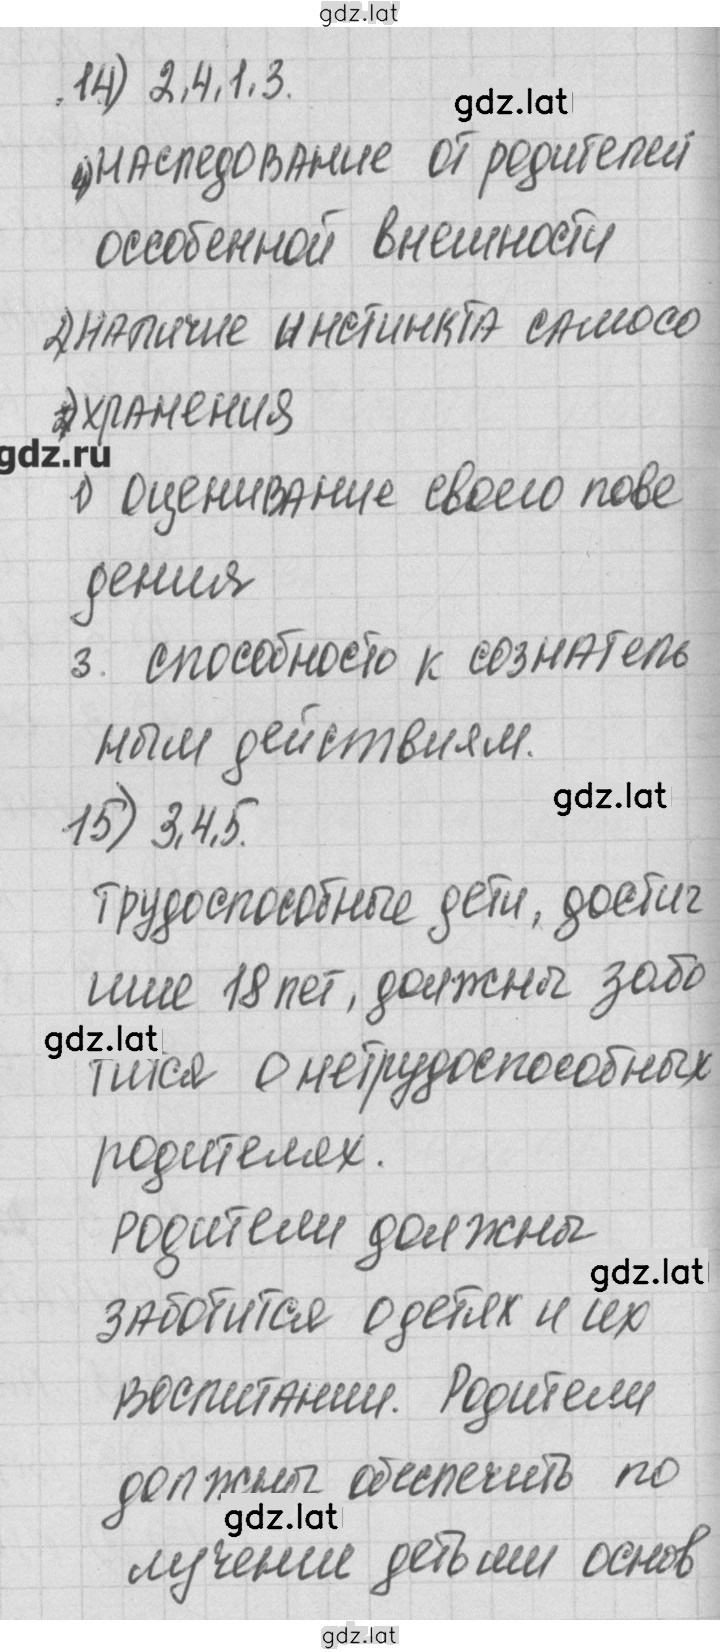 gdz.lat
14) 2,4,1,3.
gdz.lat
наследование от родителей
оссобенной внешности
2) наличие инстинкта самосо
хранения
gdz.ru
1) оценивание своего пове
дения
3. способносто к сознатель
ным действиям.
gdz.lat
15) 3,4,5.
трудоспособные дети, достиг
шие 18 лет, должны забо
gdz.lat
тится о нетрудоспособных
родителях.
Родители должны
gdz.lat
заботится о детях и их
воспитании. Родители
должны обеспечить по
gdz.lat
лучении детьми основ
gdz.lat